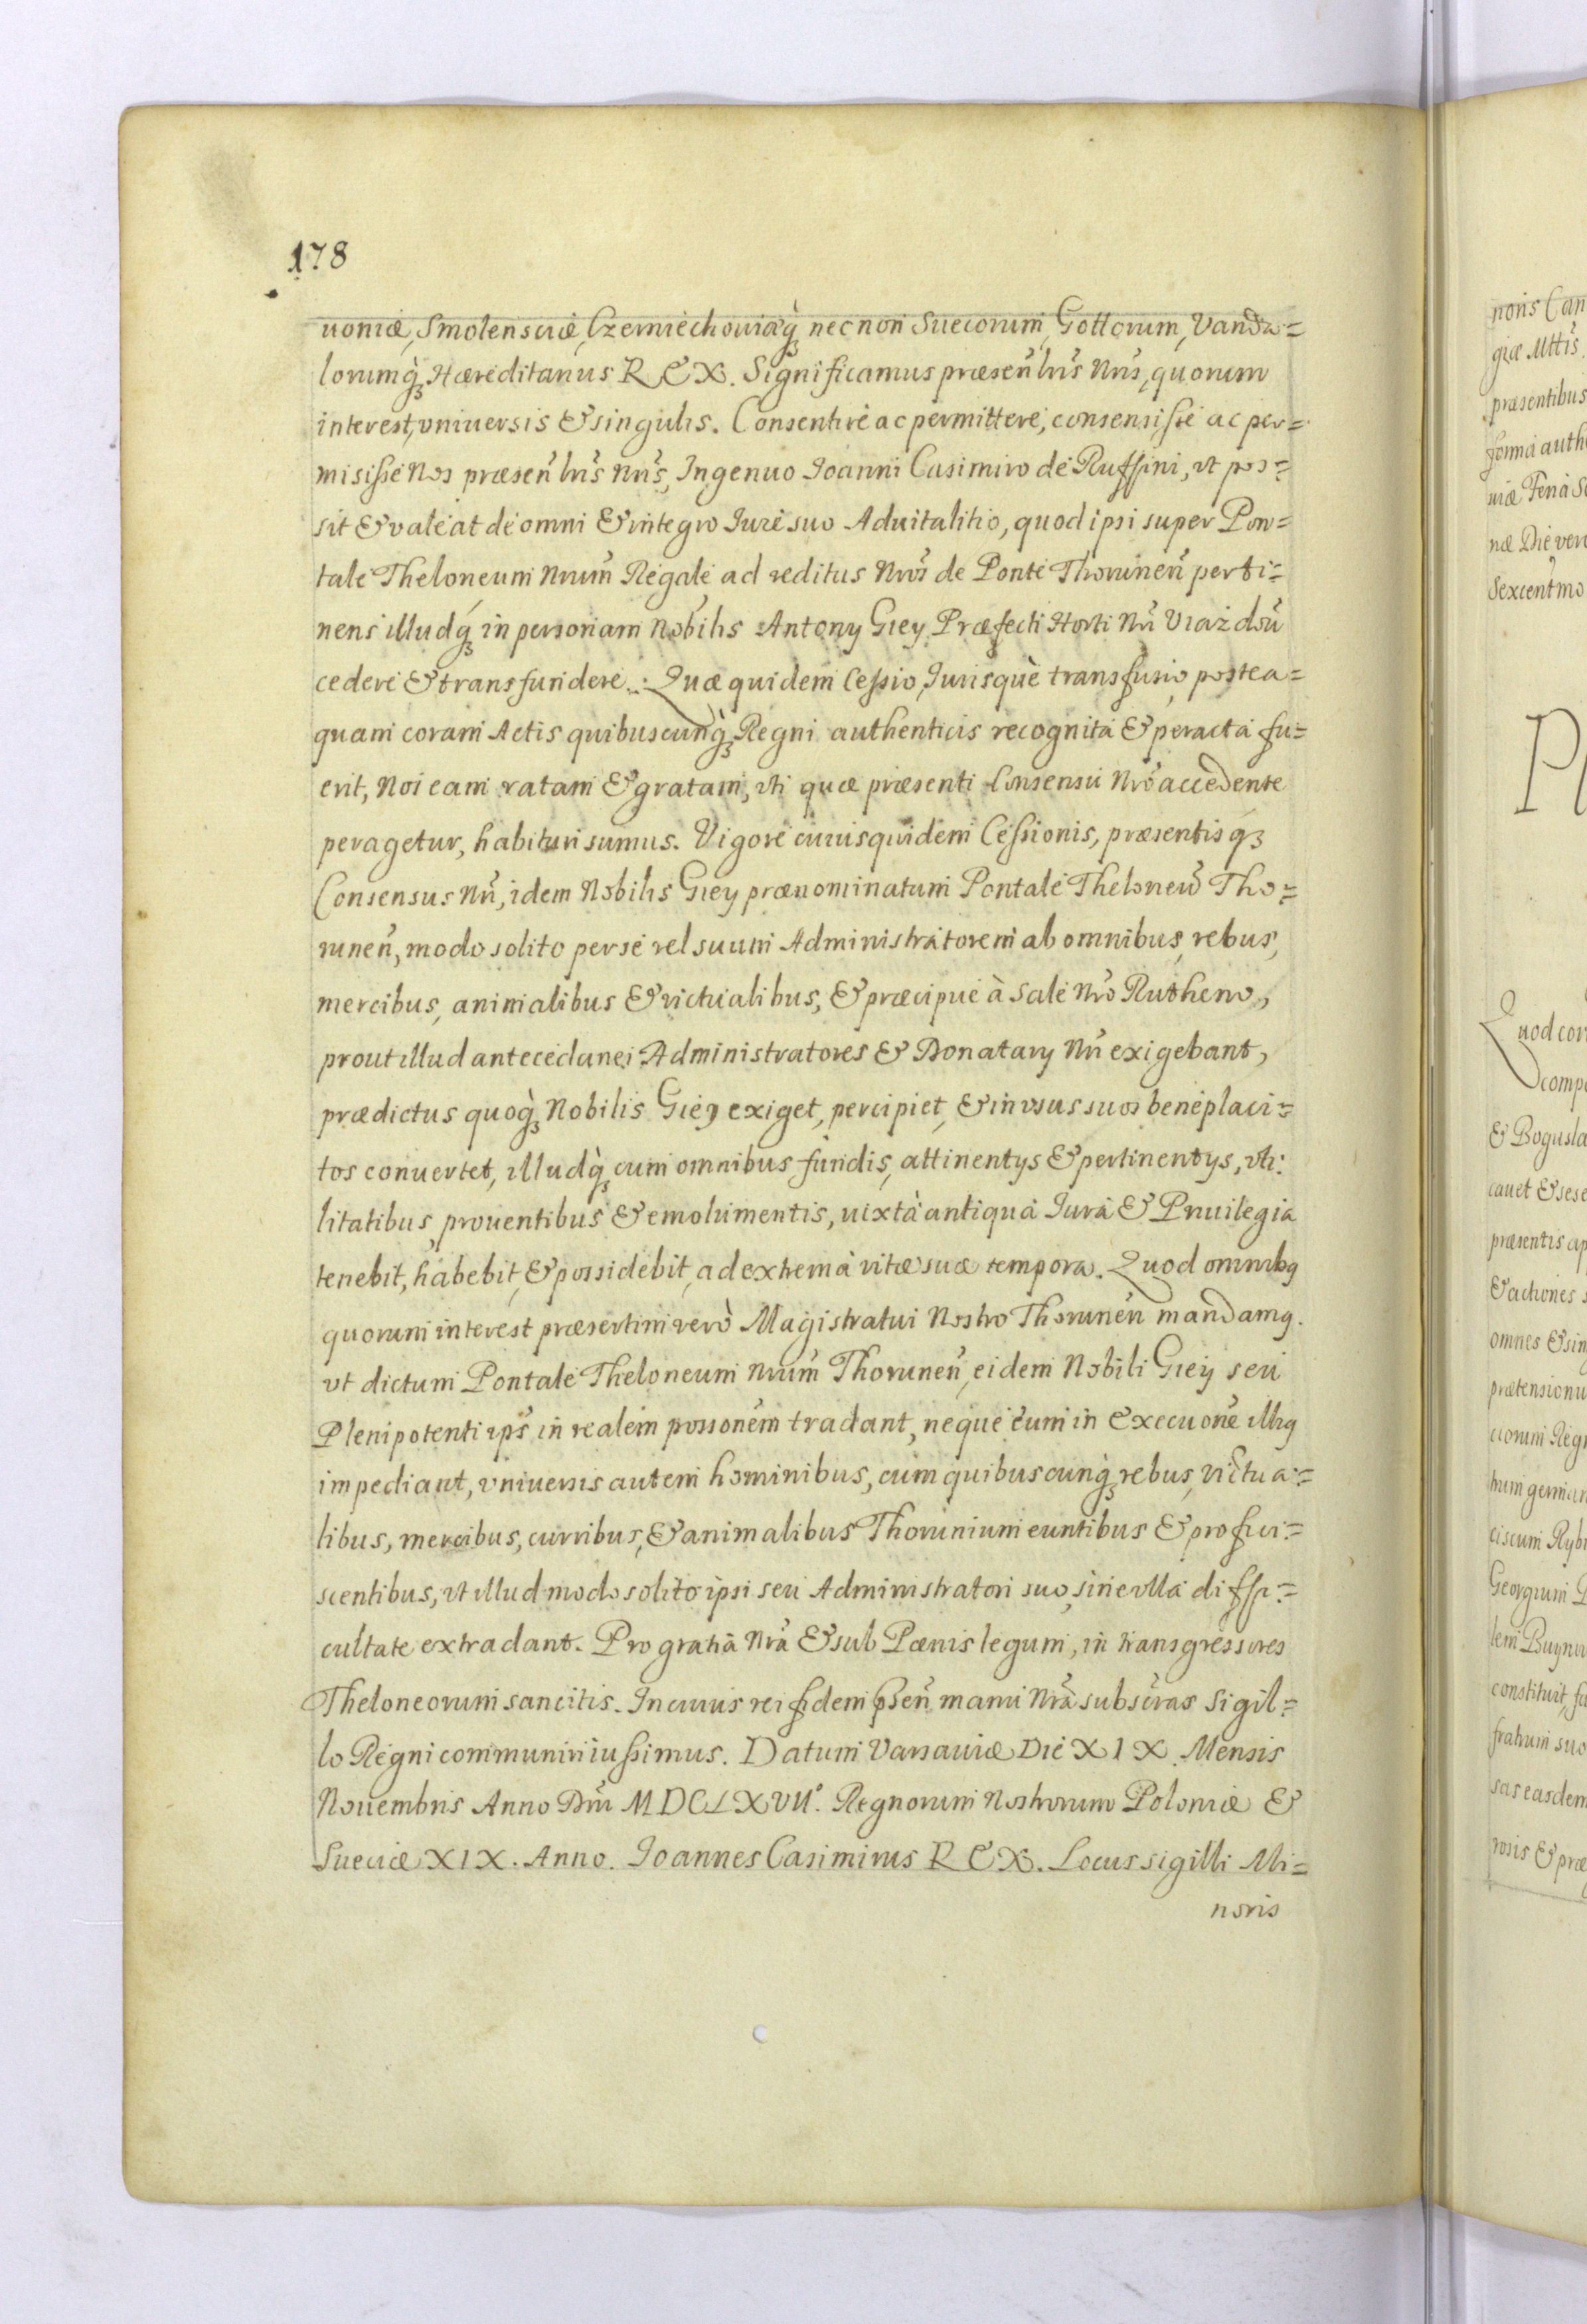 178
uoniæ, Smolensciæ, Czerniechouiæq̀ȝ necnon Suecorum, Gottorum, Vanda=
lorumq̀ȝ Hæreditarius REX. Significamus præsen̄ lrīs Nrīs, quorum
interest, vniuersis & singulis. Consentire ac permittere, consensisse ac per=
misisse Nos præsen̄ lrīs nrīs, Ingenuo Ioanni Casimiro de Ruffini, vt pos=
sit & valeat de omni & integro Iure suo Aduitalitio, quod ipsi super Pon=
tale Theloneum Nrum̄ Regale ad reditus Nros̄ de Ponte Thorunen̄ perti=
nens illudq́ȝ in personam Nobilis Antony Giey Præfecti Horti Nrī Viazdou̅
cedere & transfundere. Quæ quidem Cessio, Iurisquè transfusio, postea=
quam coram Actis quibuscunq̀ȝ Regni authenticis recognita & peracta fu=
erit, Nos eam ratam & gratam, vti quæ præsenti Consensu Nrō accedente
peragetur, habituri sumus. Vigore cuiusquidem Cessionis, præsentisq́ȝ
Consensus Nrī, idem Nobilis Giey prænominatum Pontale Theloneu̅ Tho=
runen̄, modo solito per se vel suum Administratorem ab omnibus, rebus,
mercibus, animalibus & victualibus, & præcipue à Sale Nrō Rutheno,
prout illud antecedanei Administratores & Donatary Nrī exigebant,
prædictus quoq̀ȝ Nobilis Giey exiget, percipiet, & in vsus suos beneplaci=
tos conuertet, illudq̀ȝ cum omnibus fundis, attinentys & pertinentys, vti=
litatibus, prouentibus & emolumentis, iuxtà antiqua Iura & Priuilegia
tenebit, habebit, & possidebit, ad extrema vitæ suæ tempora. Quod omnibq
quorum interest præsertim verò Magistratui Nostro Thorunen̄ mandamq.
vt dictum Pontale Theloneum Nrum̄ Thorunen̄, eidem Nobili Giey seu
Plenipotenti ips̄ in realem possonem̄ tradant, neque eum in Execuone̅ illiq
impediant, vniuersis autem hominibus, cum quibuscunq̀ȝ rebus, victua=
libus, mercibus, curribus, & animalibus Thorunium euntibus & profici=
scentibus, vt illud modo solito ipsi seu Administratori suo, sine vlla diffi=
cultate extradant. Pro gratia Nrā & sub Pœnis legum, in transgressores
Theloneorum sancitis. In cuius rei fidem psen̄ manu Nrā subscras̄ Sigil=
lo Regni communiri iussimus. Datum Varsauiæ Die XIX. Mensis
Nouembris Anno Dnī MDCLXVIIº. Regnorum Nostrorum Poloniæ &
Sueciæ XIX. Anno. Ioannes Casimirus REX. Locus sigilli Mi=
noris
noris Can
giæ Mttis
præsentibus
forma auth
niæ Feria
næ Die ven
Sexcentmo
P
Quod cor
comp
& Bogusla
cauet & sese
præsentis ap
& actiones s
omnes & sin
prætensionu
Regn
trum german
ciscum Rybi
Georgium
lem
constituit, fa
fratrum suo
sas easdem
rosis & præ